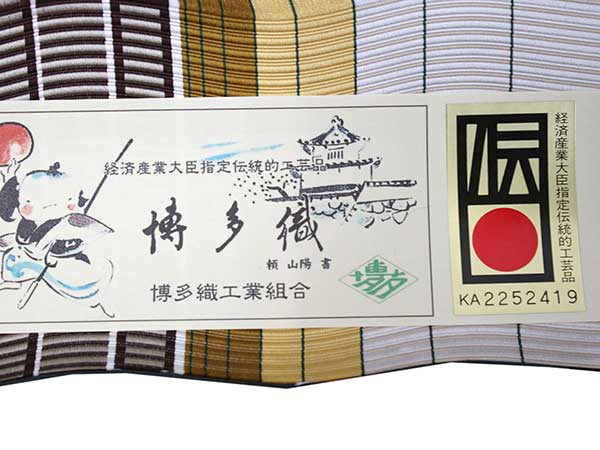 経済産業大臣指定伝統的工芸品
博多織
頼 山陽 書
博多織工業組合
博多
伝
経済産業大臣指定伝統的工芸品
KA2252419